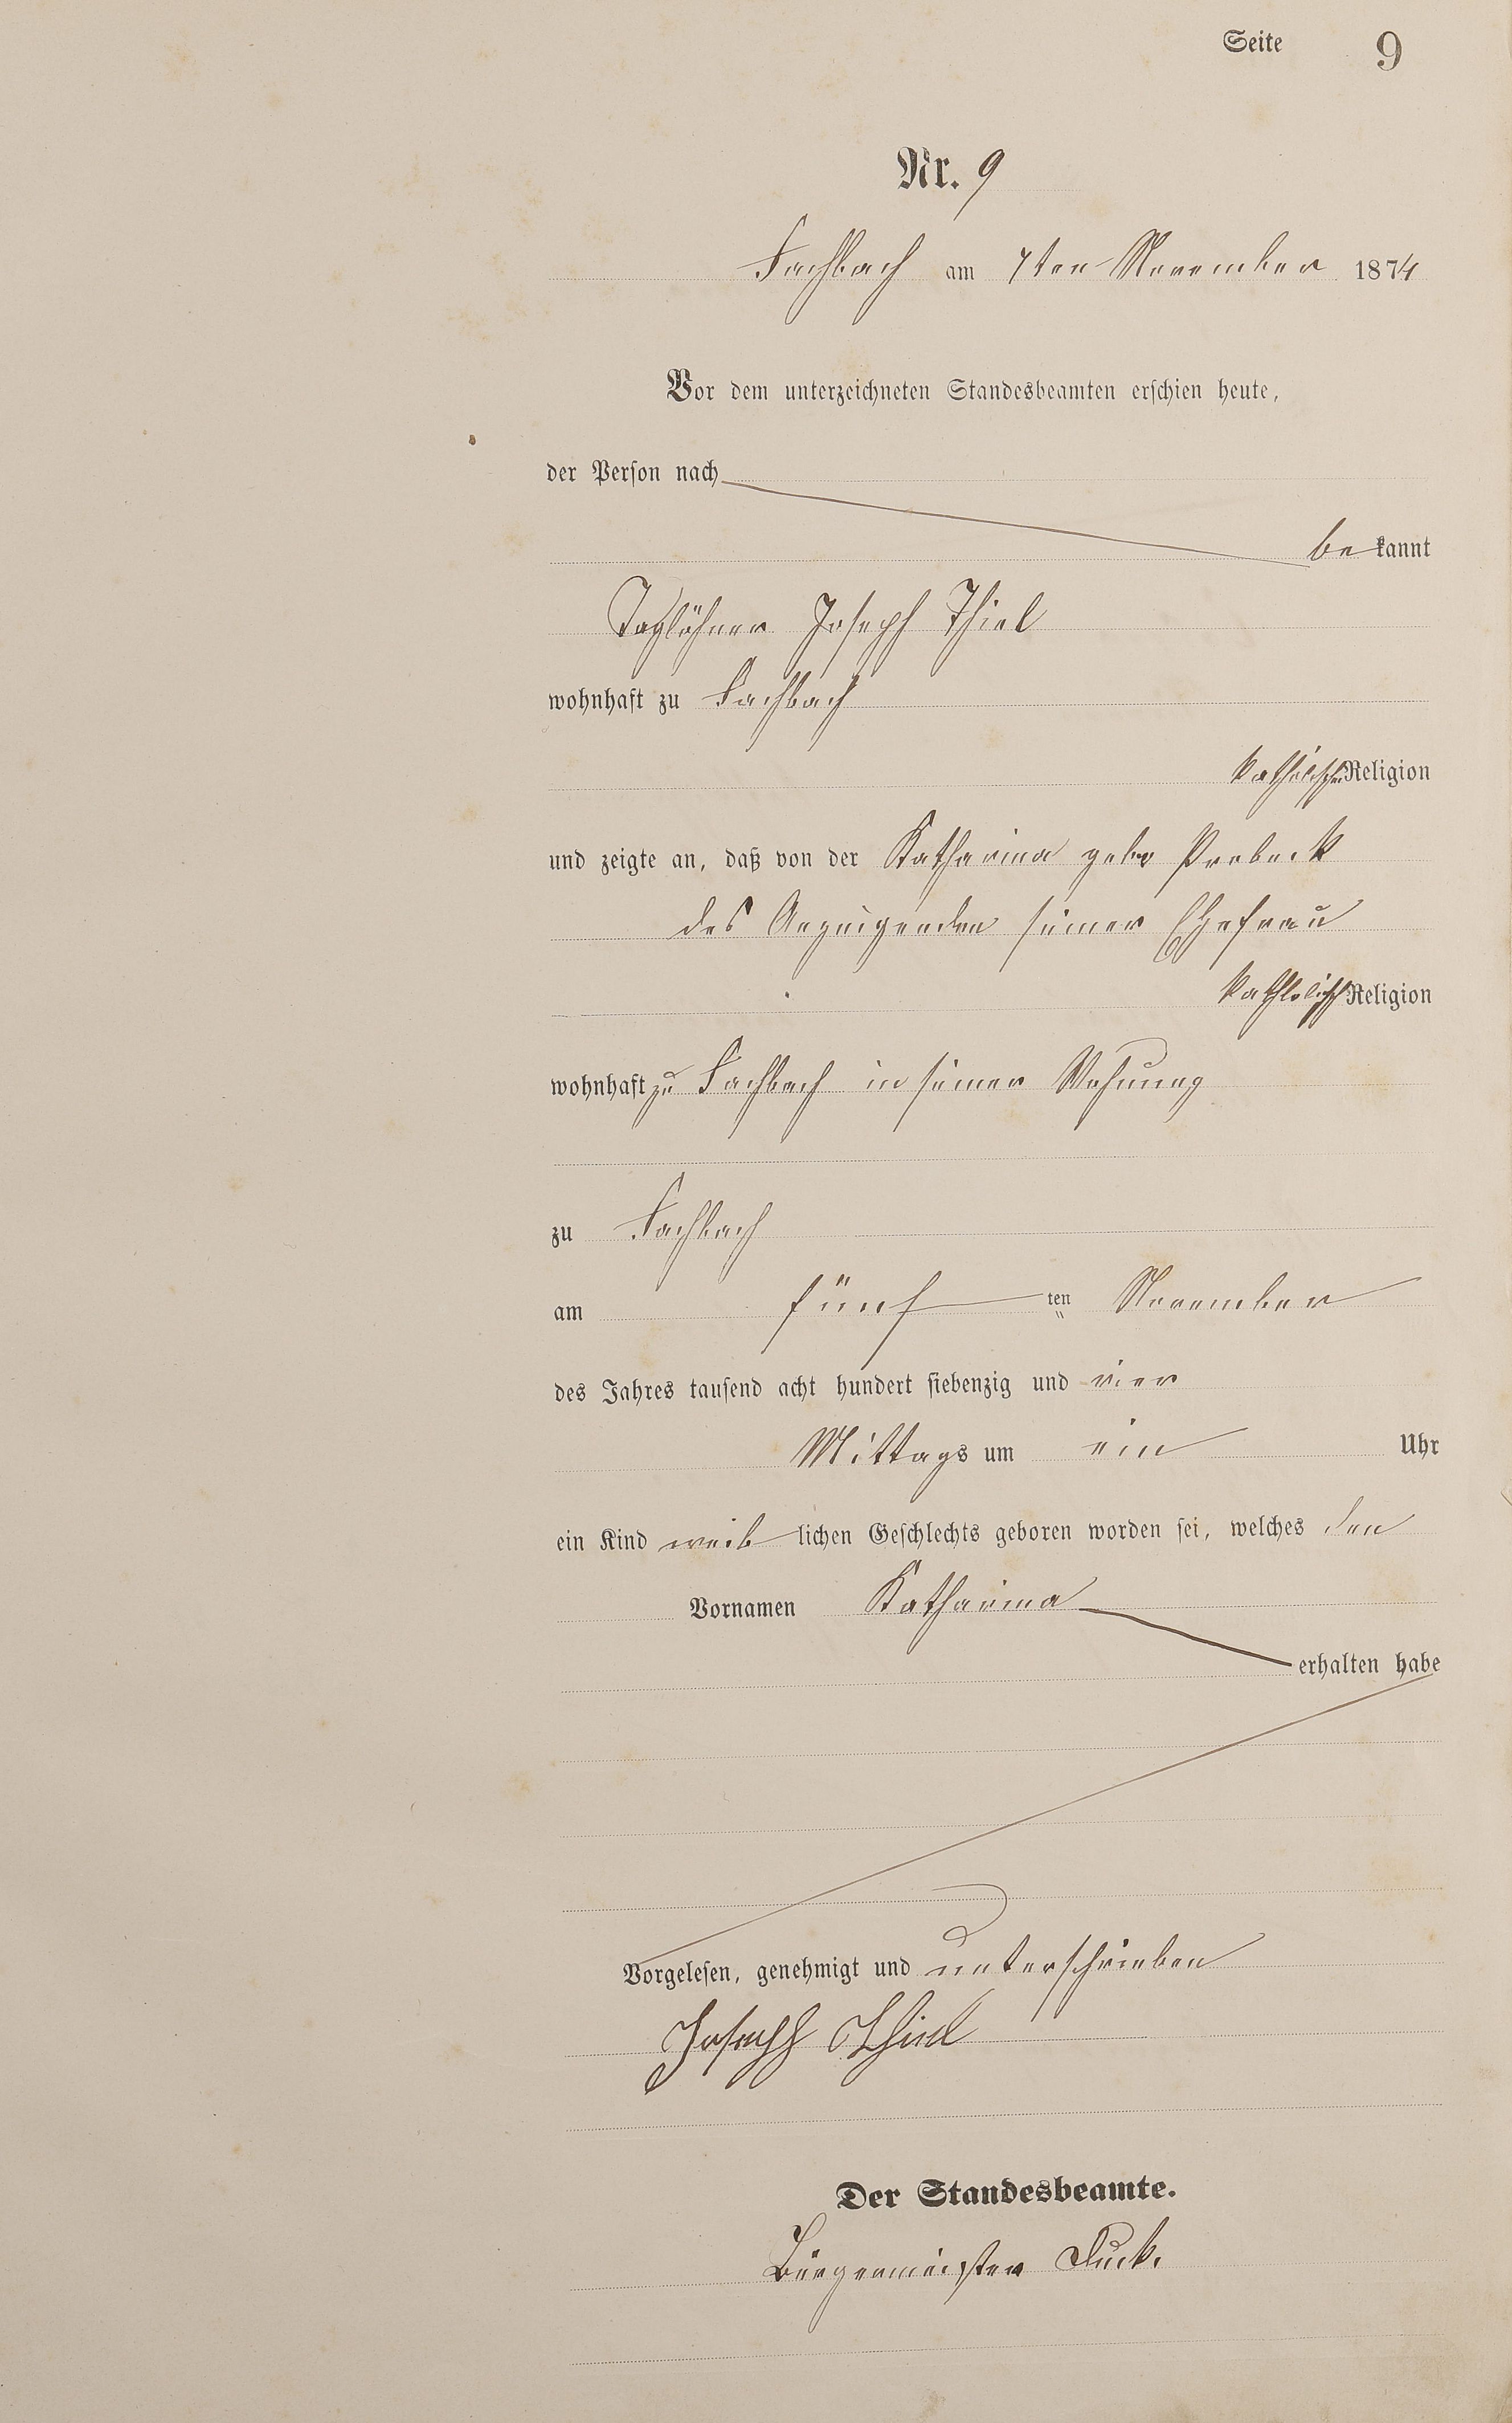 Seite 9
Nr. 9
Fachbach am 7ten November 1874
Vor dem unterzeichneten Standesbeamten erschien heute,
der Person nach
bekannt
Taglöhner Joseph Thiel
wohnhaft zu Fachbach
katholischer Religion
und zeigte an, daß von der Katharina geb. Probeck
des Anzeigenden seiner Ehefrau
katholisch Religion
wohnhaft zu Fachbach in seiner Wohnung
zu Fachbach
am fünf ten November
des Jahres tausend acht hundert siebenzig und vier
Mittags um ein Uhr
ein Kind weiblichen Geschlechts geboren worden sei, welches den
Vornamen Katharina
erhalten habe
Vorgelesen, genehmigt und unterschrieben
Joseph Thiel
Der Standesbeamte.
Bürgermeister